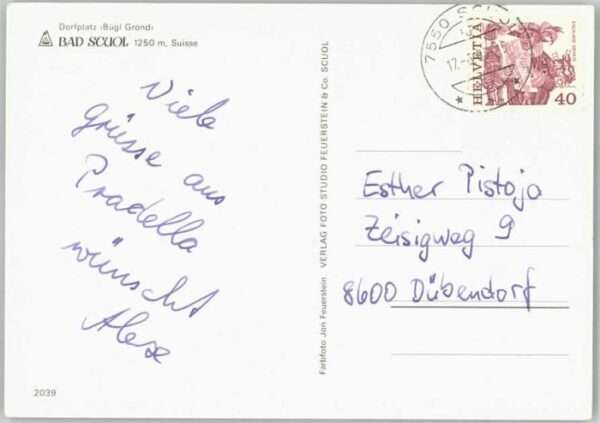 Dorfplatz ‹Bügl Grond›
BAD SCUOL 1250 m, Suisse
Viele
Grüsse aus
Pradella
wünscht
Alex
2039
Farbfoto Jon Feuerstein VERLAG FOTO STUDIO FEUERSTEIN & Co. SCUOL
7550 SCUOL
HELVETIA
40
Esther Pistoja
Zeisigweg 9
8600 Dübendorf